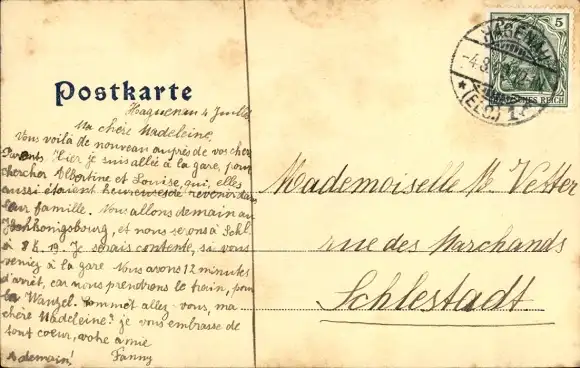 Postkarte
Haguenau 4 Juillet
Ma chère Madeleine
Vous voilà de nouveau auprès de vos chers
Parents. Hier je suis allée à la gare, pour
chercher Albertine et Louise, qui, elles
aussi étaient heureuses de revenir dans
leur famille. Nous allons demain au
Hohkönigsbourg, et nous serons à Schl.
à 8 h. 19. Je serais contente, si vous
veniez à la gare. Nous avons 12 minutes
d'arrêt, car nous prendrons le train, pour
la Wanzel. Comment allez-vous, ma
chère Madeleine? je vous embrasse de
tout coeur, votre amie
A demain! Fanny
5
HAGENAU
DEUTSCHES REICH
* (ELS.)
Mademoiselle M Vetter
rue des Marchands
Schlestadt